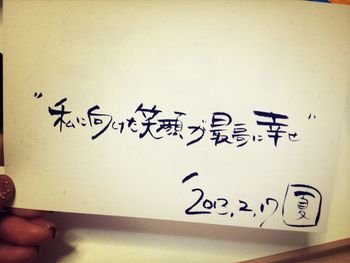 "私に向けた笑顔が最高に幸せ"
'2013.2.17 夏